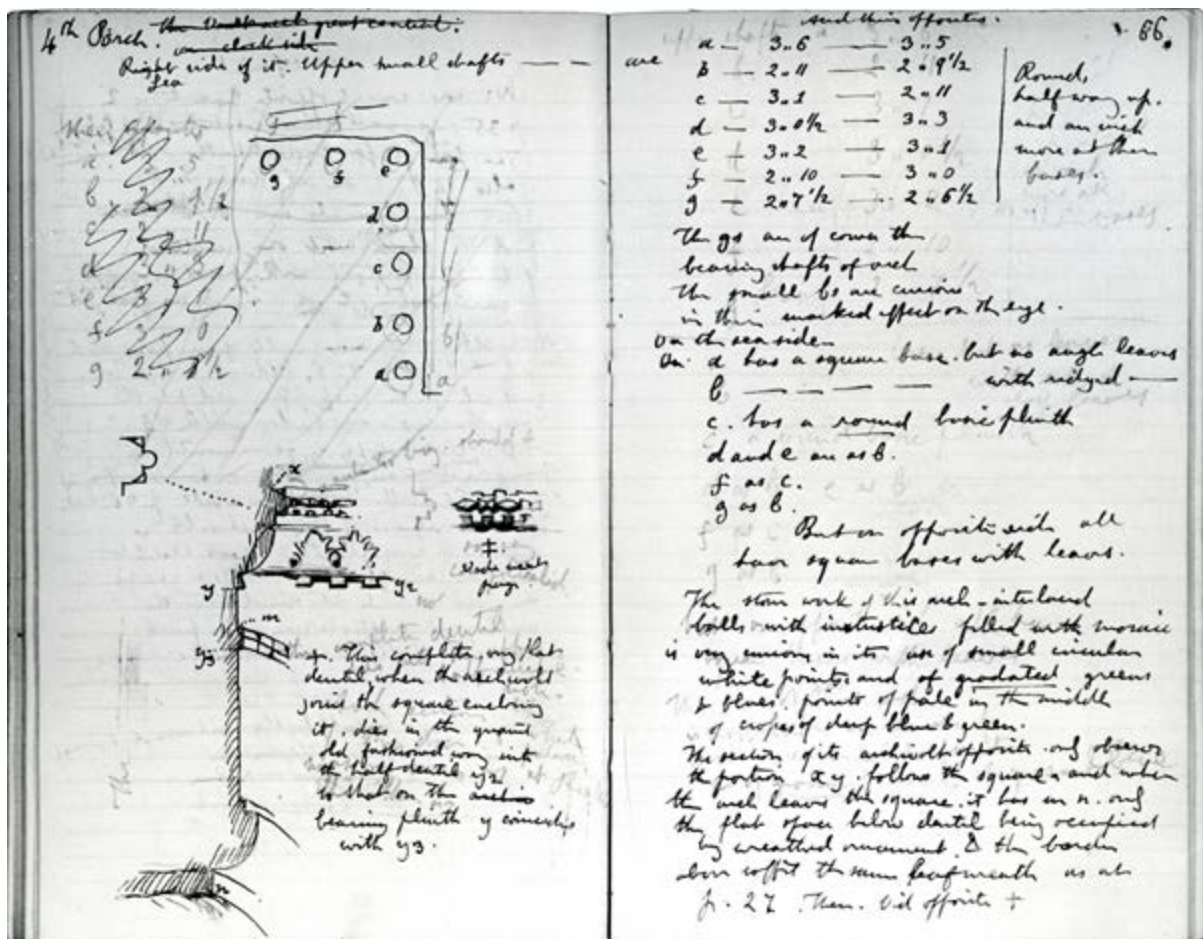 4th Porch. the
on clock side
Right side of it. Upper small shafts — —
Sea
their opposites
a. 3 5
b. 2. 9 1/2
c 2 11
d 3. 3
e 3 1
f 3 0
g 2. 6 1/2
g f e
d
c
b
a
x
y y2
m
y3
+. This complete, very flat
dentil, when the archivolt
joins the square enclosing
it, dies in the quaint
old fashioned way into
the half dentil y2
so that on the arch
bearing plinth y coincides
with y3.
n
and their opposites.
86.
are a — 3..6 — 3..5
b — 2..11 — 2..9 1/2
c — 3..1 — 2..11
d — 3..0 1/2 — 3..3
e — 3..2 — 3..1
f — 2..10 — 3..0
g — 2..7 1/2 — 2..6 1/2
Round,
half way up.
and an inch
more at their
bases.
The gs are of course the
bearing shafts of arch
The small bs are curious
in their marked effect on the eye.
On the sea side
On a has a square base. but no angle leaves
b — — — — with ridged —
c. has a round basic plinth
d and e are as b.
f as c.
g as b.
But on opposite side all
have square bases with leaves.
The stone work of this arch - interlaced
balls with interstices filled with mosaic
is very curious in its use of small circular
white points and of gradated greens
& blues. points of pale in the middle
of of deep blue & green.
The section of its archivolt opposite. only observe
the portion x y. follows the square, and when
the arch leaves the square. it has m n. only
the flat space below dentil being occupied
by wreathed ornament. & the border
above soffit the same leaf wreath as at
p. 27. Then. Vid opposite +